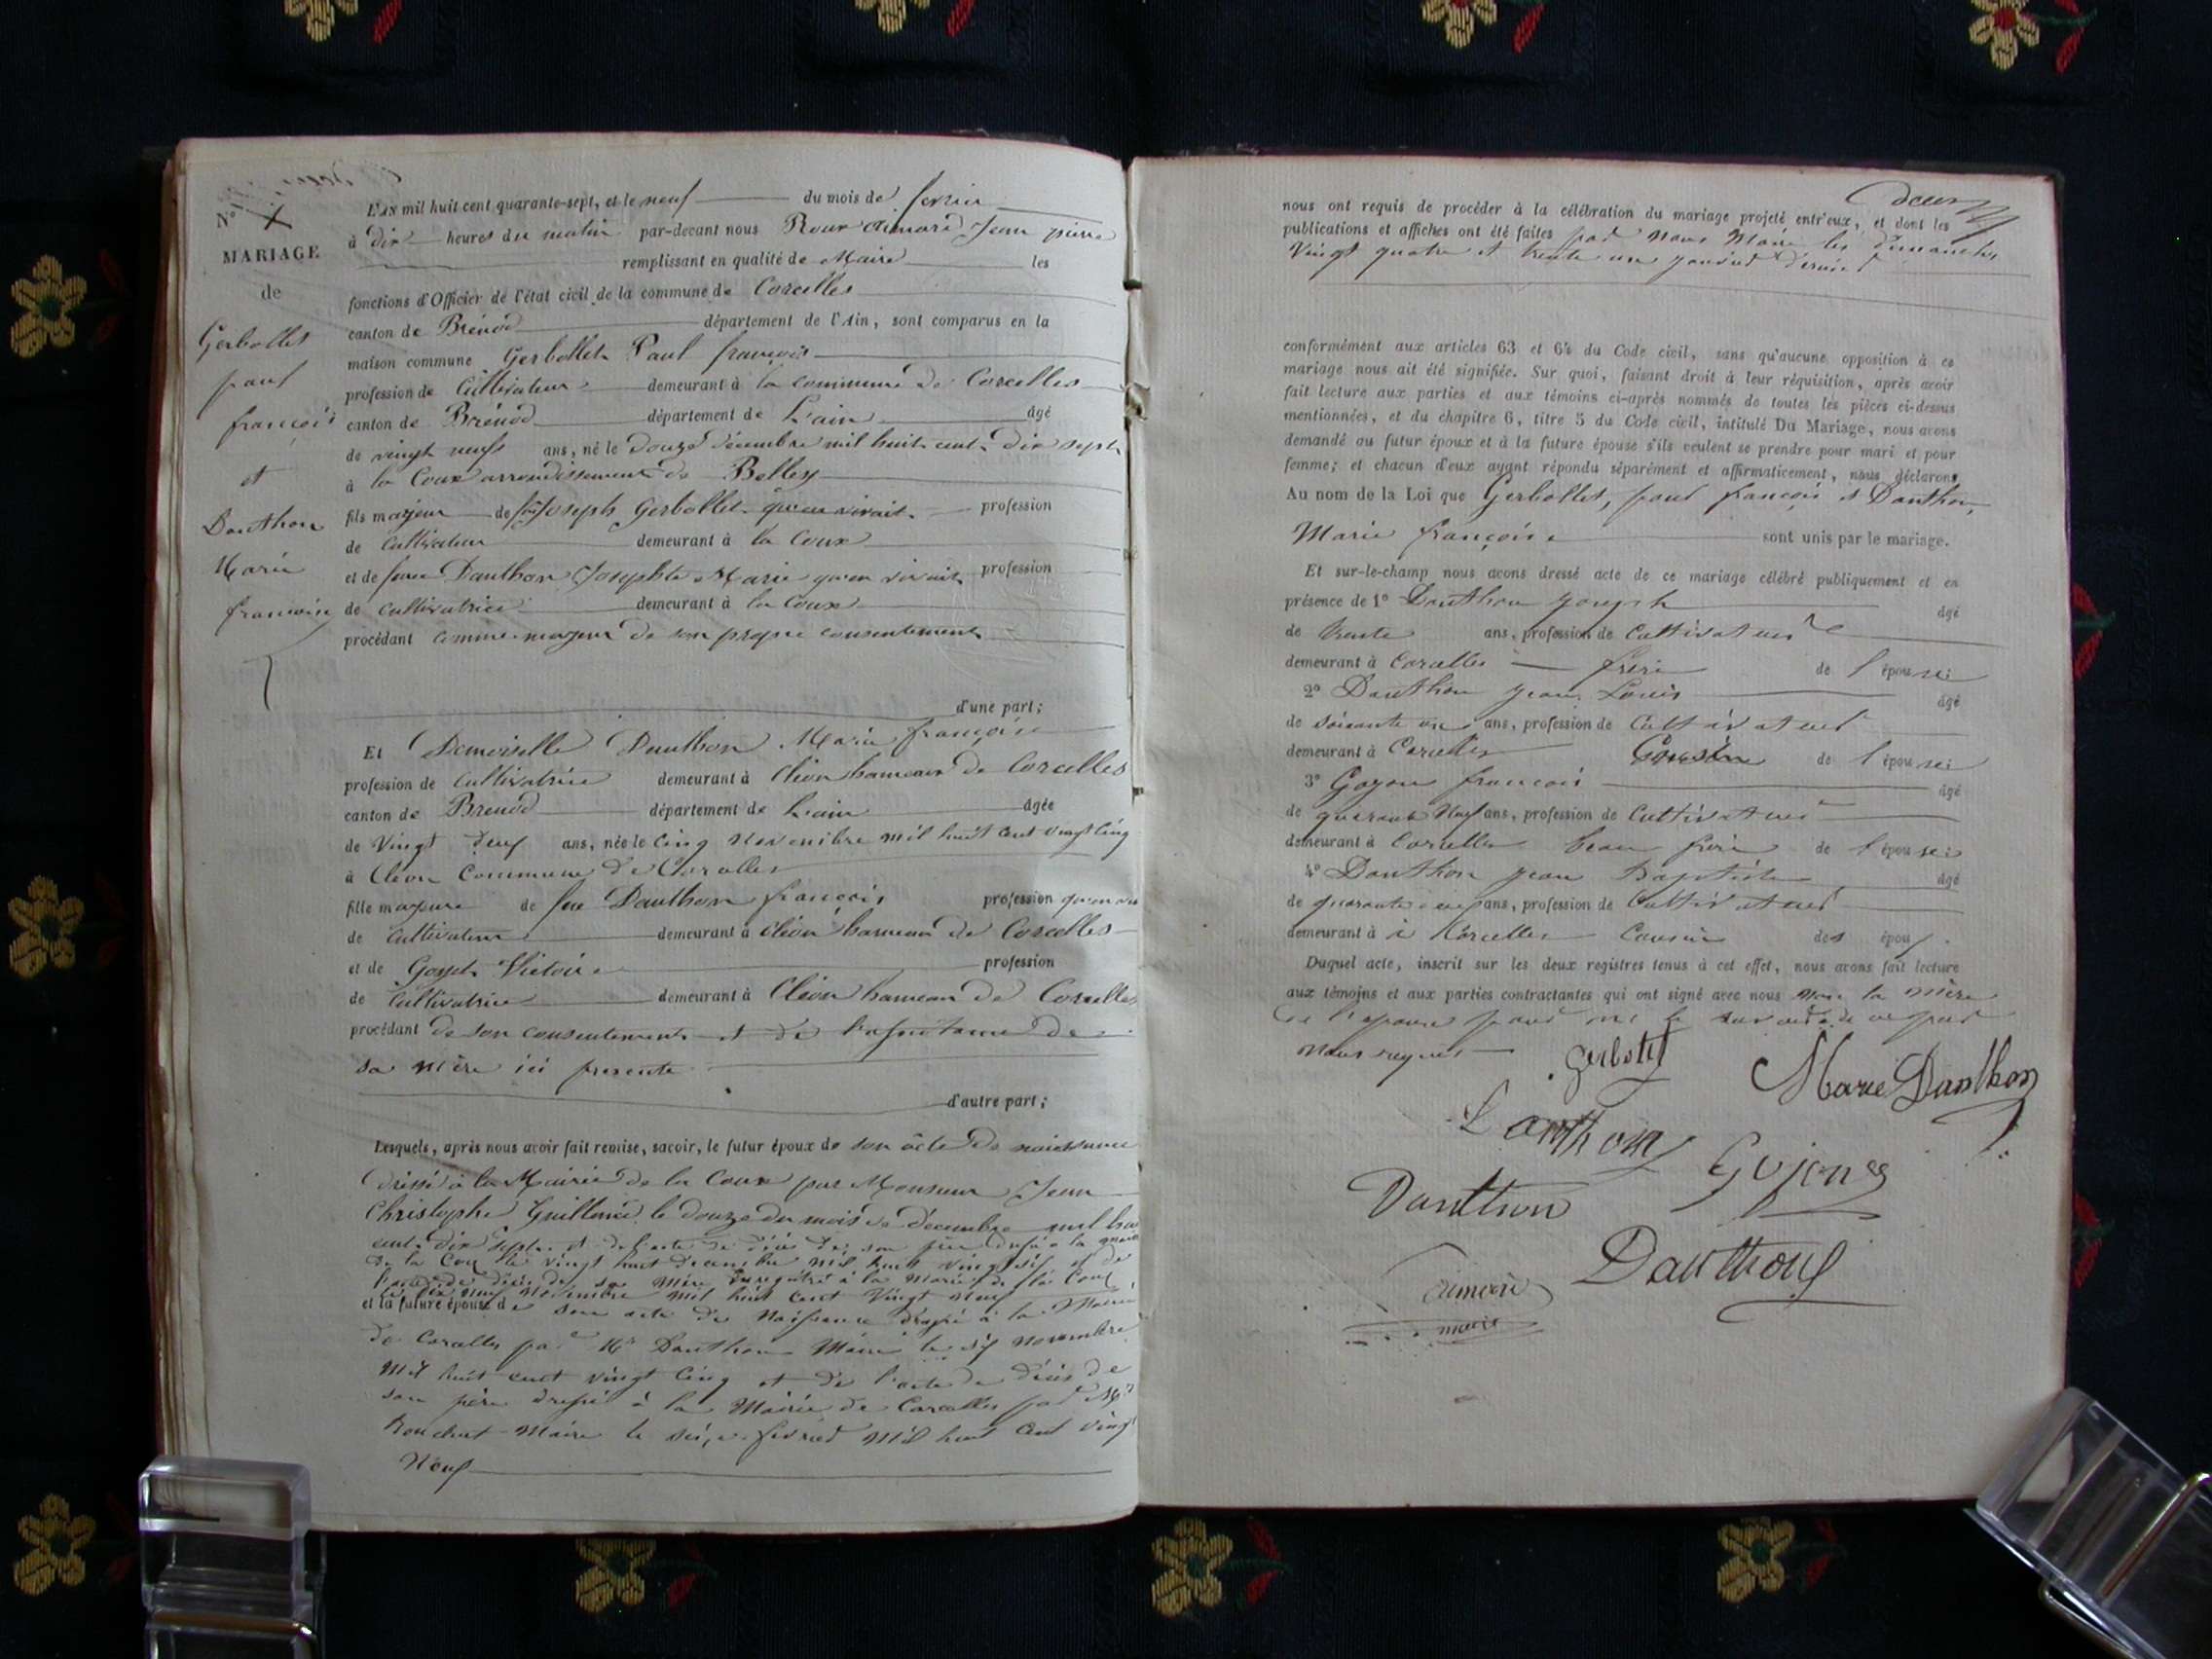 N°
MARIAGE
de
Gerbollet
paul
françois
et
Danthon
Marie
françoise
L'AN mil huit cent quarante-sept, et le neuf du mois de février
à dix heures du matin par-devant nous Roux Aimaré Jean pierre
remplissant en qualité de Maire les
fonctions d'Officier de l'état civil de la commune de Corcelles
canton de Brénod département de l'Ain, sont comparus en la
maison commune Gerbollet Paul françois
profession de Cultivateur demeurant à la commune de Corcelles
canton de Brénod département de L'ain âgé
de vingt neuf ans, né le douze décembre mil huit cent dix sept
à la Coux arrondissement de Belley
fils majeur de feu Joseph Gerbollet qu'en vivait profession
de Cultivateur demeurant à la Coux
et de feue Danthon Josephte Marie qu'en vivait profession
de cultivatrice demeurant à la Coux
procédant comme majeur de son propre consentement
d'une part;
Et Demoiselle Danthon Marie françoise
profession de Cultivatrice demeurant à Cléon hameau de Corcelles
canton de Brenod département de L'ain âgée
de Vingt deux ans, née le Cinq Novembre mil huit cent vingt Cinq
à Cléon Commune de Corcelles
fille majeure de feu Danthon françois profession qu'en
de Cultivateur demeurant à Cléon hameau de Corcelles
et de Goyet Victoire profession
de Cultivatrice demeurant à Cléon hameau de Corcelles
procédant de son consentement et de l'assistance de
sa mère ici presente
d'autre part;
Lesquels, après nous avoir fait remise, savoir, le futur époux de son acte de naissance
dressé à la Mairie de la Coux par Monsieur Jean
Christophe Guillomé le douze du mois de décembre mil huit
cent dix sept et de l'acte de décès de son père à la
de la Coux le vingt huit décembre mil huit vingt six et de
l'acte de décès de sa mère enregistré à la Mairie de la Coux
le dix neuf novembre mil huit cent Vingt neuf
et la future épouse de son acte de Naissance dressé à la Mairie
de Corcelles par Mr Danthon Maire le six Novembre
Mil huit cent vingt Cinq et de l'acte de décès de
son père dressé à la Mairie de Corcelles par Mr
Maire le février Mil huit Cent Vingt
Neuf
deux
nous ont requis de procéder à la célébration du mariage projeté entr'eux, et dont les
publications et affiches ont été faites par nous Maire les dimanches
Vingt quatre et trente un janvier dernier
conformément aux articles 63 et 64 du Code civil, sans qu'aucune opposition à ce
mariage nous ait été signifiée. Sur quoi, faisant droit à leur réquisition, après avoir
fait lecture aux parties et aux témoins ci-après nommés de toutes les pièces ci-dessus
mentionnées, et du chapitre 6, titre 5 du Code civil, intitulé Du Mariage, nous avons
demandé au futur époux et à la future épouse s'ils veulent se prendre pour mari et pour
femme; et chacun d'eux ayant répondu séparément et affirmativement, nous déclarons
Au nom de la Loi que Gerbollet, paul françois et Danthon,
Marie françoise sont unis par le mariage.
Et sur-le-champ nous avons dressé acte de ce mariage célébré publiquement et en
présence de 1° Danthon joseph âgé
de trente ans, profession de Cultivateur
demeurant à Corcelles frère de l'épouse
2° Danthon jean Louis âgé
de soixante un ans, profession de Cultivateur
demeurant à Corcelles Cousin de l'épouse
3° Goyon françois âgé
de quarante Neuf ans, profession de Cultivateur
demeurant à Corcelles beau frère de l'épouse
4° Danthon jean Baptiste âgé
de quarante ans, profession de Cultivateur
demeurant à à Corcelles Cousin des époux.
Duquel acte, inscrit sur les deux registres tenus à cet effet, nous avons fait lecture
aux témoins et aux parties contractantes qui ont signé avec nous non la mère
de l'épouse pour ne le savoir de ce par
nous requis
Gerbollet
Marie Danthon
Danthon
Gojon
Danthon
Danthon
Aimaré
maire